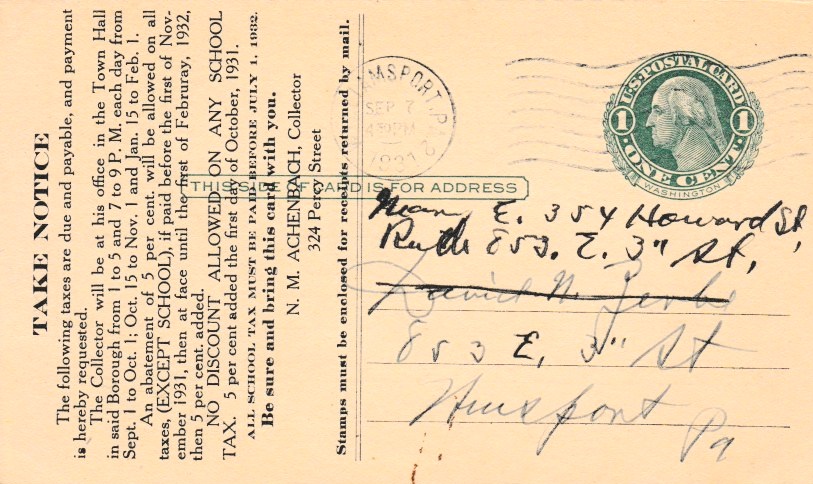 TAKE NOTICE
The following taxes are due and payable, and payment
is hereby requested.
The Collector will be at his office in the Town Hall
in said Borough from 1 to 5 and 7 to 9 P. M. each day from
Sept. 1 to Oct. 1; Oct. 15 to Nov. 1 and Jan. 15 to Feb. 1.
An abatement of 5 per cent. will be allowed on all
taxes, (EXCEPT SCHOOL), if paid before the first of Nov-
ember 1931, then at face until the first of Februray, 1932,
then 5 per cent. added.
NO DISCOUNT ALLOWED ON ANY SCHOOL
TAX. 5 per cent added the first day of October, 1931.
ALL SCHOOL TAX MUST BE PAID BEFORE JULY 1, 1932.
Be sure and bring this card with you.
N. M. ACHENBACH, Collector
324 Percy Street
Stamps must be enclosed for receipts returned by mail.
AMSPORT, PA
SEP 7
4 30 PM
1931
2
U.S. POSTAL CARD
1 1
ONE CENT
WASHINGTON
THIS SIDE OF CARD IS FOR ADDRESS
E. 354 Howard St,
Ruth 853. E. 3" St,
David N. Zerbe
853 E, 3" St
Wmsport
Pa